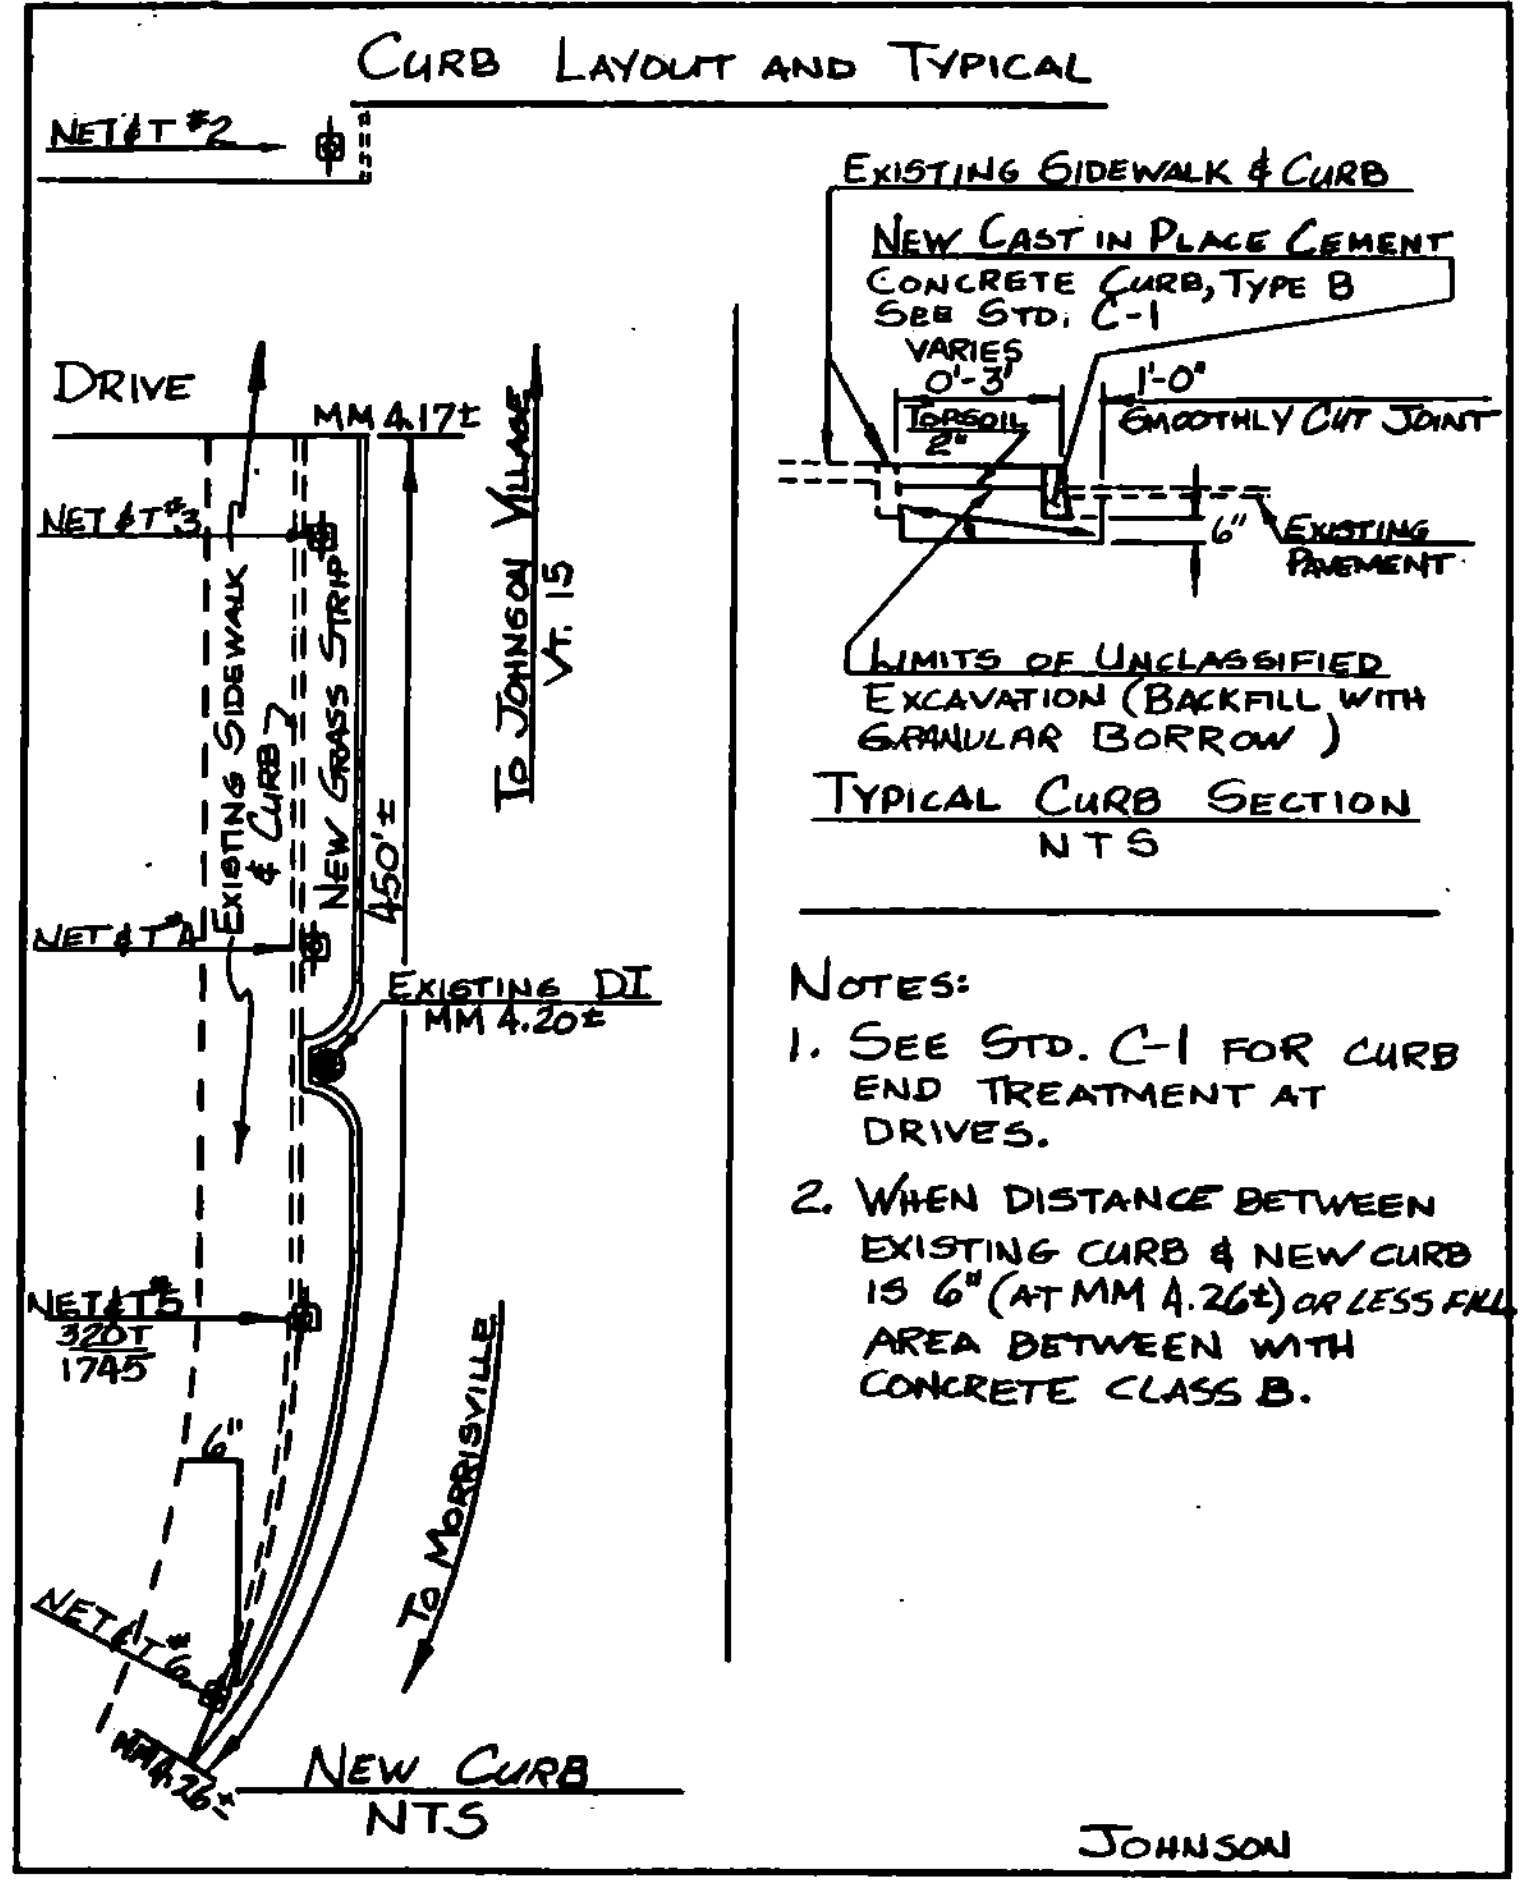 CURB LAYOUT AND TYPICAL
NET&T #2
DRIVE
MM 4.17±
NET&T #3
EXISTING SIDEWALK
& CURB
NEW GRASS STRIP
450'±
TO JOHNSON VILLAGE
VT. 15
NET&T #4
EXISTING DI
MM 4.20±
NET&T #5
320T
1745
6"
NET&T #6
MM 4.26±
TO MORRISVILLE
NEW CURB
NTS
EXISTING SIDEWALK & CURB
NEW CAST IN PLACE CEMENT
CONCRETE CURB, TYPE B
SEE STD. C-1
VARIES
0'-3'
1'-0"
TOPSOIL
2"
SMOOTHLY CUT JOINT
6"
EXISTING
PAVEMENT
LIMITS OF UNCLASSIFIED
EXCAVATION (BACKFILL WITH
GRANULAR BORROW)
TYPICAL CURB SECTION
NTS
NOTES:
1. SEE STD. C-1 FOR CURB
END TREATMENT AT
DRIVES.
2. WHEN DISTANCE BETWEEN
EXISTING CURB & NEW CURB
IS 6" (AT MM 4.26±) OR LESS FILL
AREA BETWEEN WITH
CONCRETE CLASS B.
JOHNSON